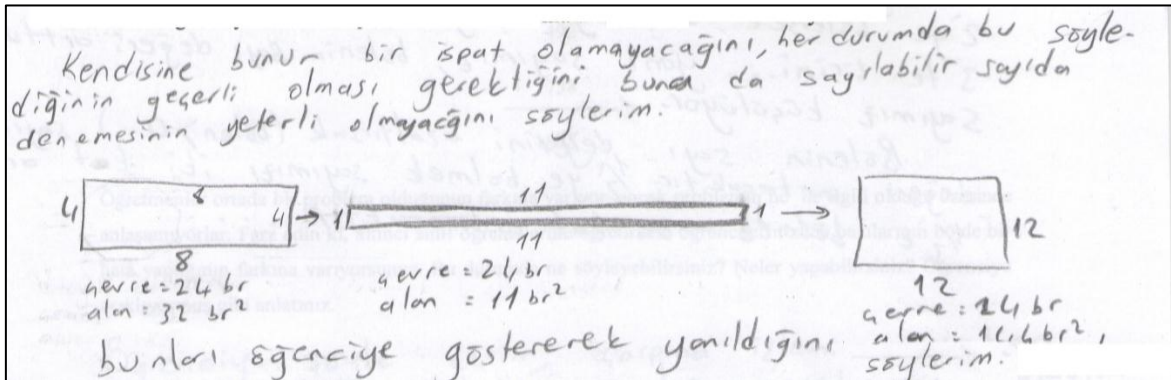 Kendisine bunun bir ispat olamayacağını, her durumda bu söyle-
diğinin geçerli olması gerektiğini buna da sayılabilir sayıda
denemesinin yeterli olmayacağını söylerim.
4 8 4 → 1 11 1 → 12
8 11 12
çevre = 24 br çevre = 24 br çevre = 24 br
alan = 32 br² alan = 11 br² alan = 144 br²,
bunları öğrenciye göstererek yanıldığını söylerim.